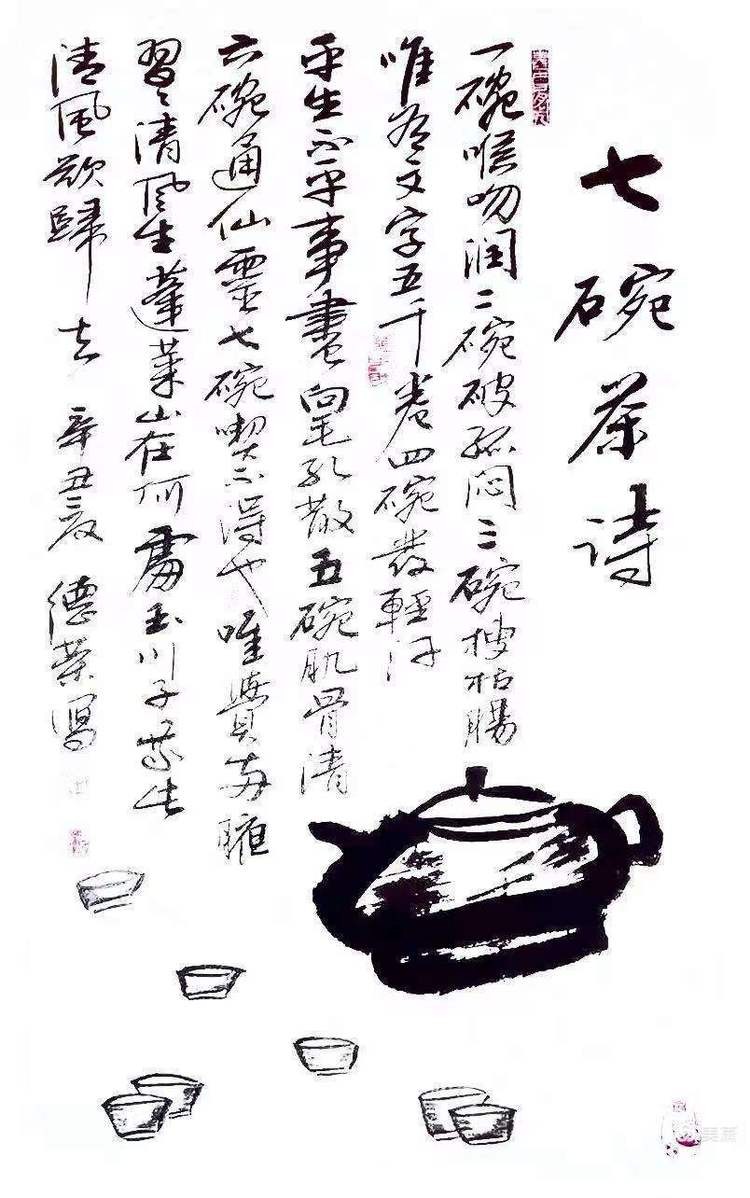 七碗茶诗
一碗喉吻润二碗破孤闷三碗搜枯腸
唯有文字五千卷四碗發輕汗
平生不平事盡向毛孔散五碗肌骨清
六碗通仙靈七碗喫不得也唯覺两腋
習々清风生蓬莱山在何處玉川子乘此
清風欲歸去 辛丑夏 德榮寫
美篇